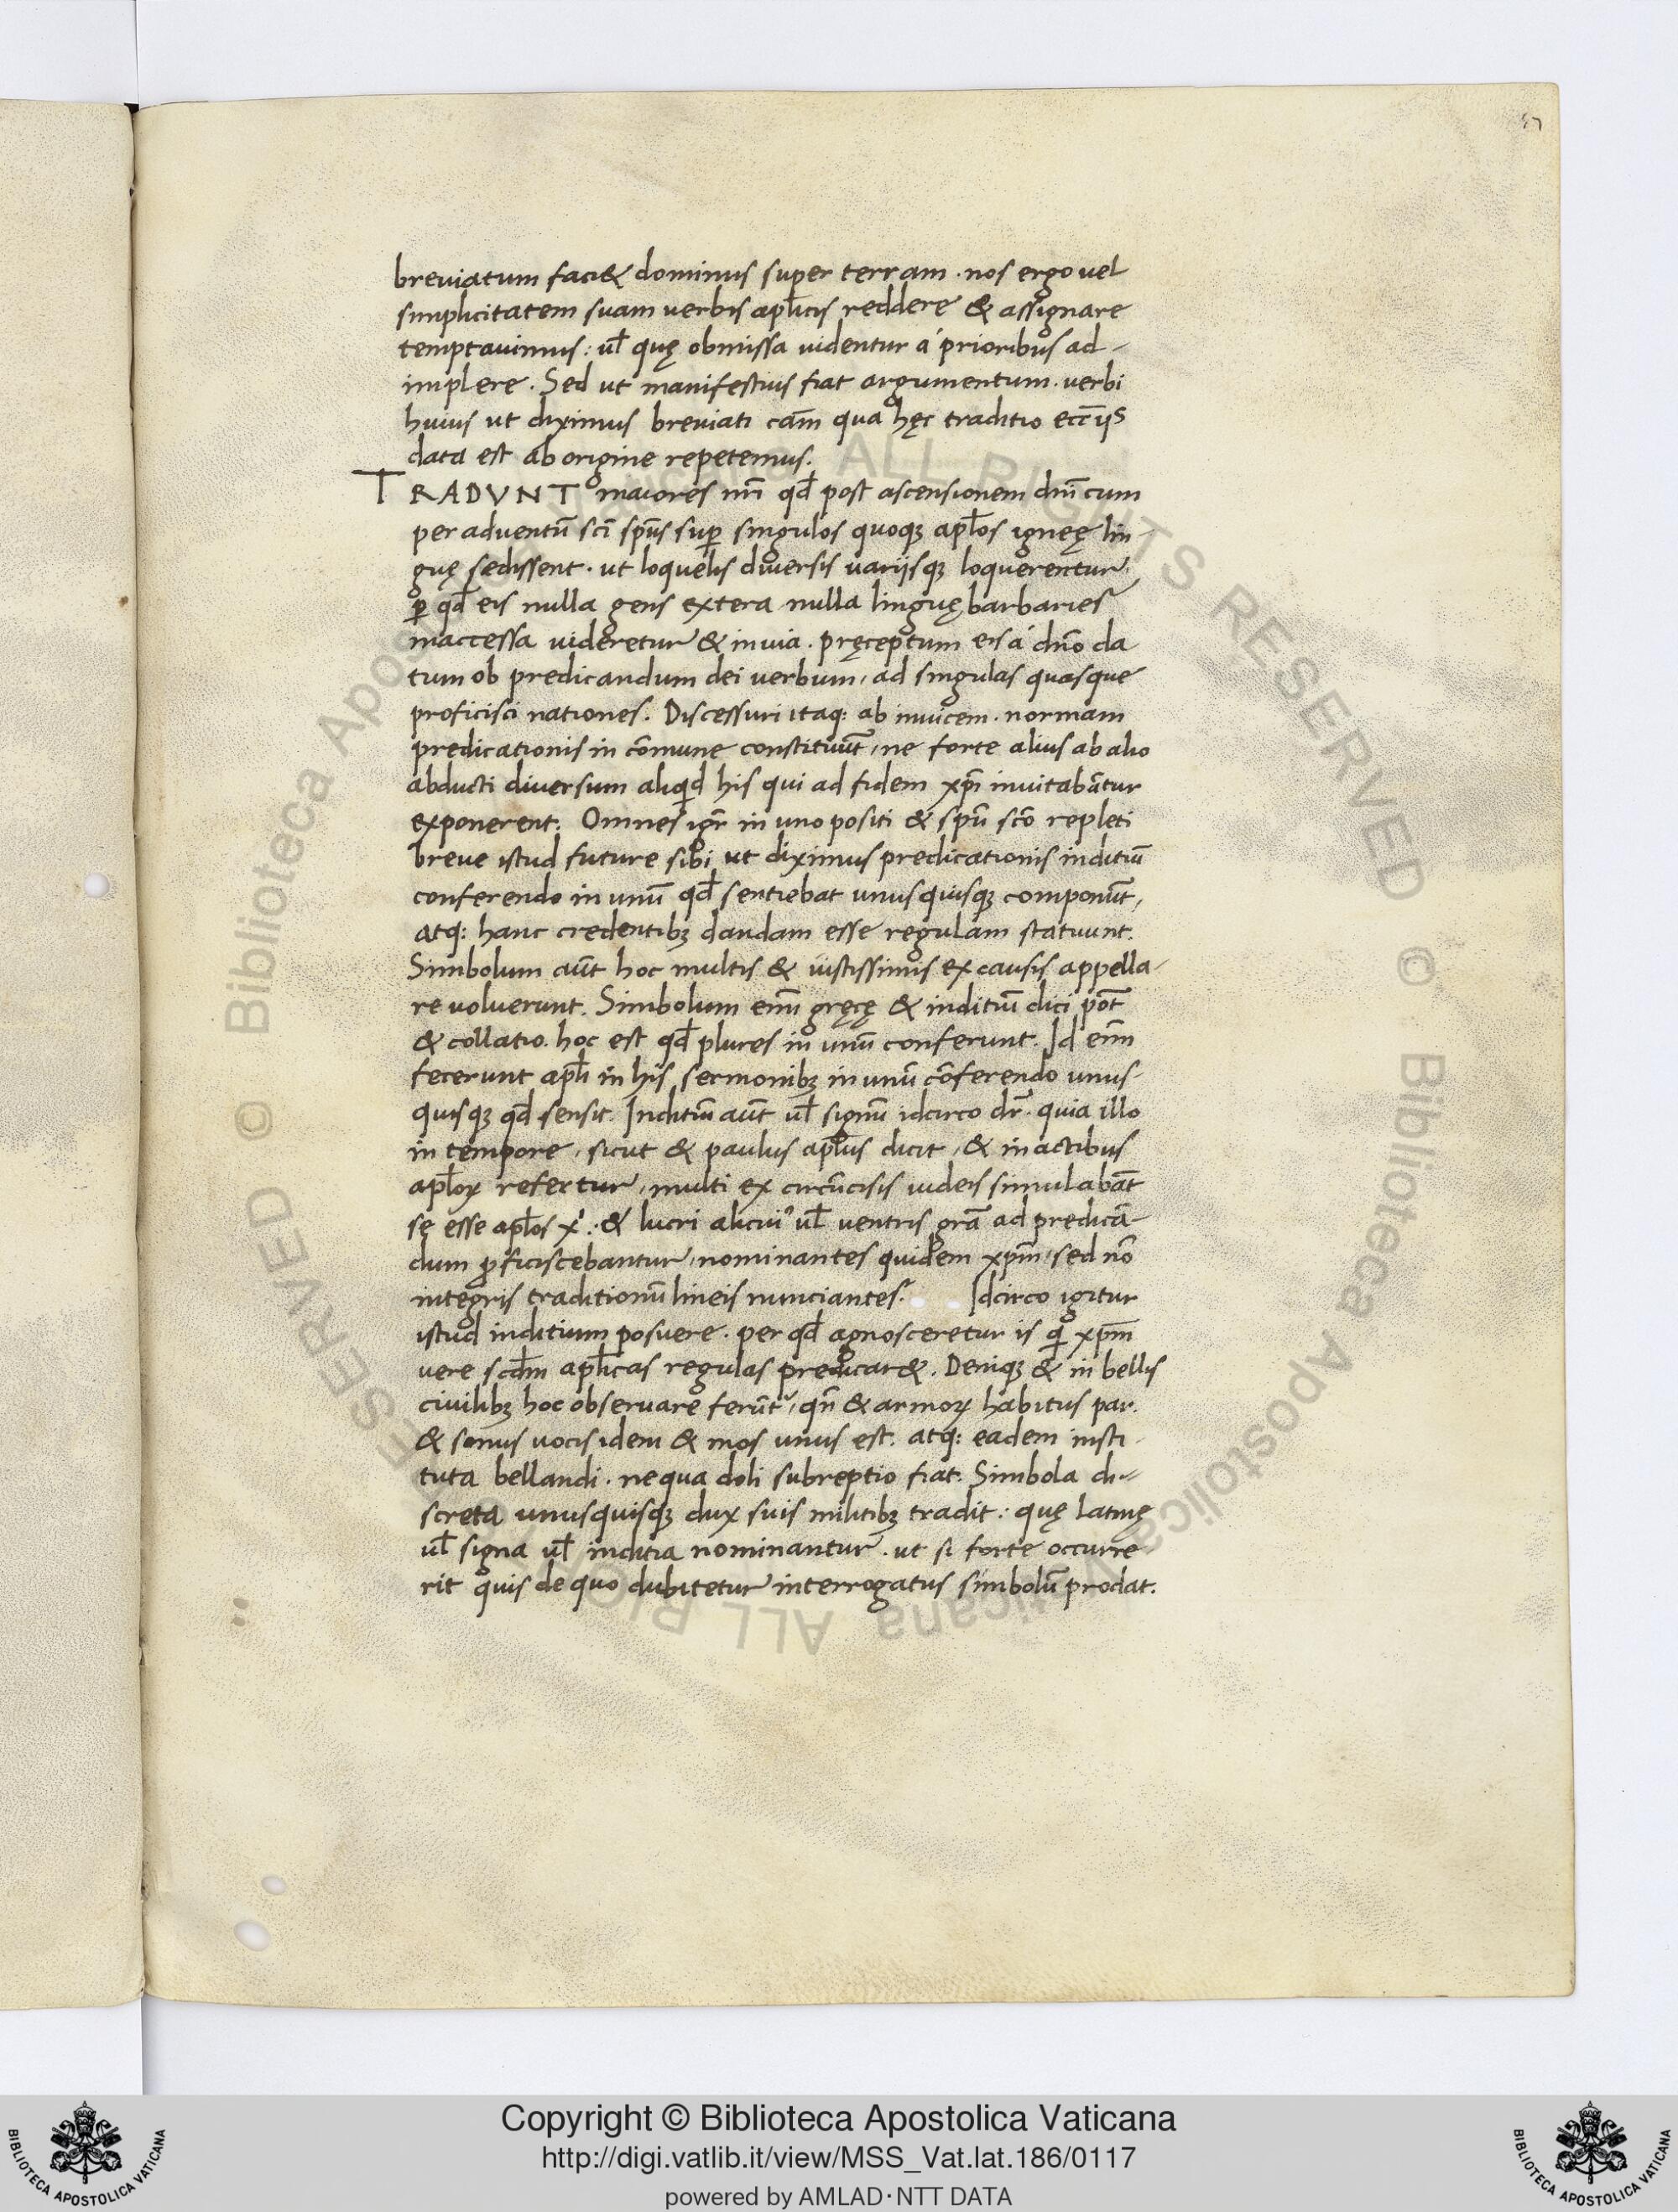 57
breviatum faci& dominus super terram . nos ergo vel
simplicitatem suam verbis apl̄icis reddere & assignare
temptavimus : ul̄ quę obmissa videntur á prioribus ad-
implere . Sed ut manifestius fiat argumentum . verbi
huius ut diximus breviati cām qua hęc traditio ecc̄iis
data est ab origine repetemus .
TRADVNT maiores nr̄i qd̄ post ascensionem dn̄i cum
per adventū sc̄i sp̄us sup̄ singulos quoqꝫ apl̄os igneę lin-
guę sedissent . ut loquelis diversis variisqꝫ loquerentur,
ꝑ qd̄ eis nulla gens extera nulla linguę barbaries
inaccessa videretur & invia . pręceptum eis á dn̄o da
tum ob predicandum dei verbum, ad singulas quasque
proficisci nationes . Discessuri itaq: ab invicem . normam
predicationis in cōmune constituūt, ne forte alius ab alio
abducti diversum aliqid his qui ad fidem xp̄i invitabātur
exponerent . Omnes igr̄ in uno positi & spū scō repleti
breve istud future sibi ut diximus predicationis inditiū
conferendo in unū qd̄ sentiebat unusquisqꝫ componūt,
atq: hanc credentibꝫ dandam esse regulam statuunt .
Simbolum aūt hoc multis & iustissimis ex causis appella-
re voluerunt . Simbolum eni̅ gręcę & inditiū dici pōt
& collatio . hoc est qd̄ plures in unū conferunt . Id eni̅
fecerunt apl̄i in his sermonibꝫ in unū cōferendo unus-
quisqꝫ qd̄ sensit . Inditiū aūt ul̄ signū idcirco dr̄ . quia illo
in tempore, sicut & paulus apl̄us dicit, & in actibus
apl̄oꝝ refertur, multi ex circūcisis iudeis simulabāt
sę esse apl̄os xⁱ : & lucri alicui᾽ ul̄ ventris grā ad predicā-
dum ꝓficiscebantur, nominantes quidem xp̄m, sed nō
integris traditionū lineis nunciantes . Idcirco igitur
istud inditium posuere . per qd̄ agnosceretur is qi xp̄m
vere scdm̄ apl̄icas regulas predicar& . Deniqꝫ & in bellis
civilibꝫ hoc observare ferūt᾽, qn̄ & armoꝝ habitus par .
& sonus vocis idem & mos unus est . atq: eadem insti-
tuta bellandi . ne qua doli subreptio fiat . Simbola di-
screta unusquisqꝫ dux suis militibꝫ tradit : quę Latinę
ul̄ signa ul̄ inditia nominantur . ut si forte occurre
rit quis de quo dubitetur interrogatus simbolū prodat .
© Biblioteca Apostolica Vaticana ALL RIGHTS RESERVED
© Biblioteca Apostolica Vaticana ALL RIGHTS RESERVED
Copyright © Biblioteca Apostolica Vaticana
http://digi.vatlib.it/view/MSS_Vat.lat.186/0117
powered by AMLAD·NTT DATA
BIBLIOTECA APOSTOLICA VATICANA
BIBLIOTECA APOSTOLICA VATICANA